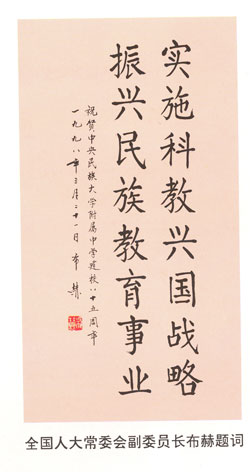 实施科教兴国战略
振兴民族教育事业
祝贺中央民族大学附属中学建校八十五周年
一九九八年三月二十一日 布赫
全国人大常委会副委员长布赫题词